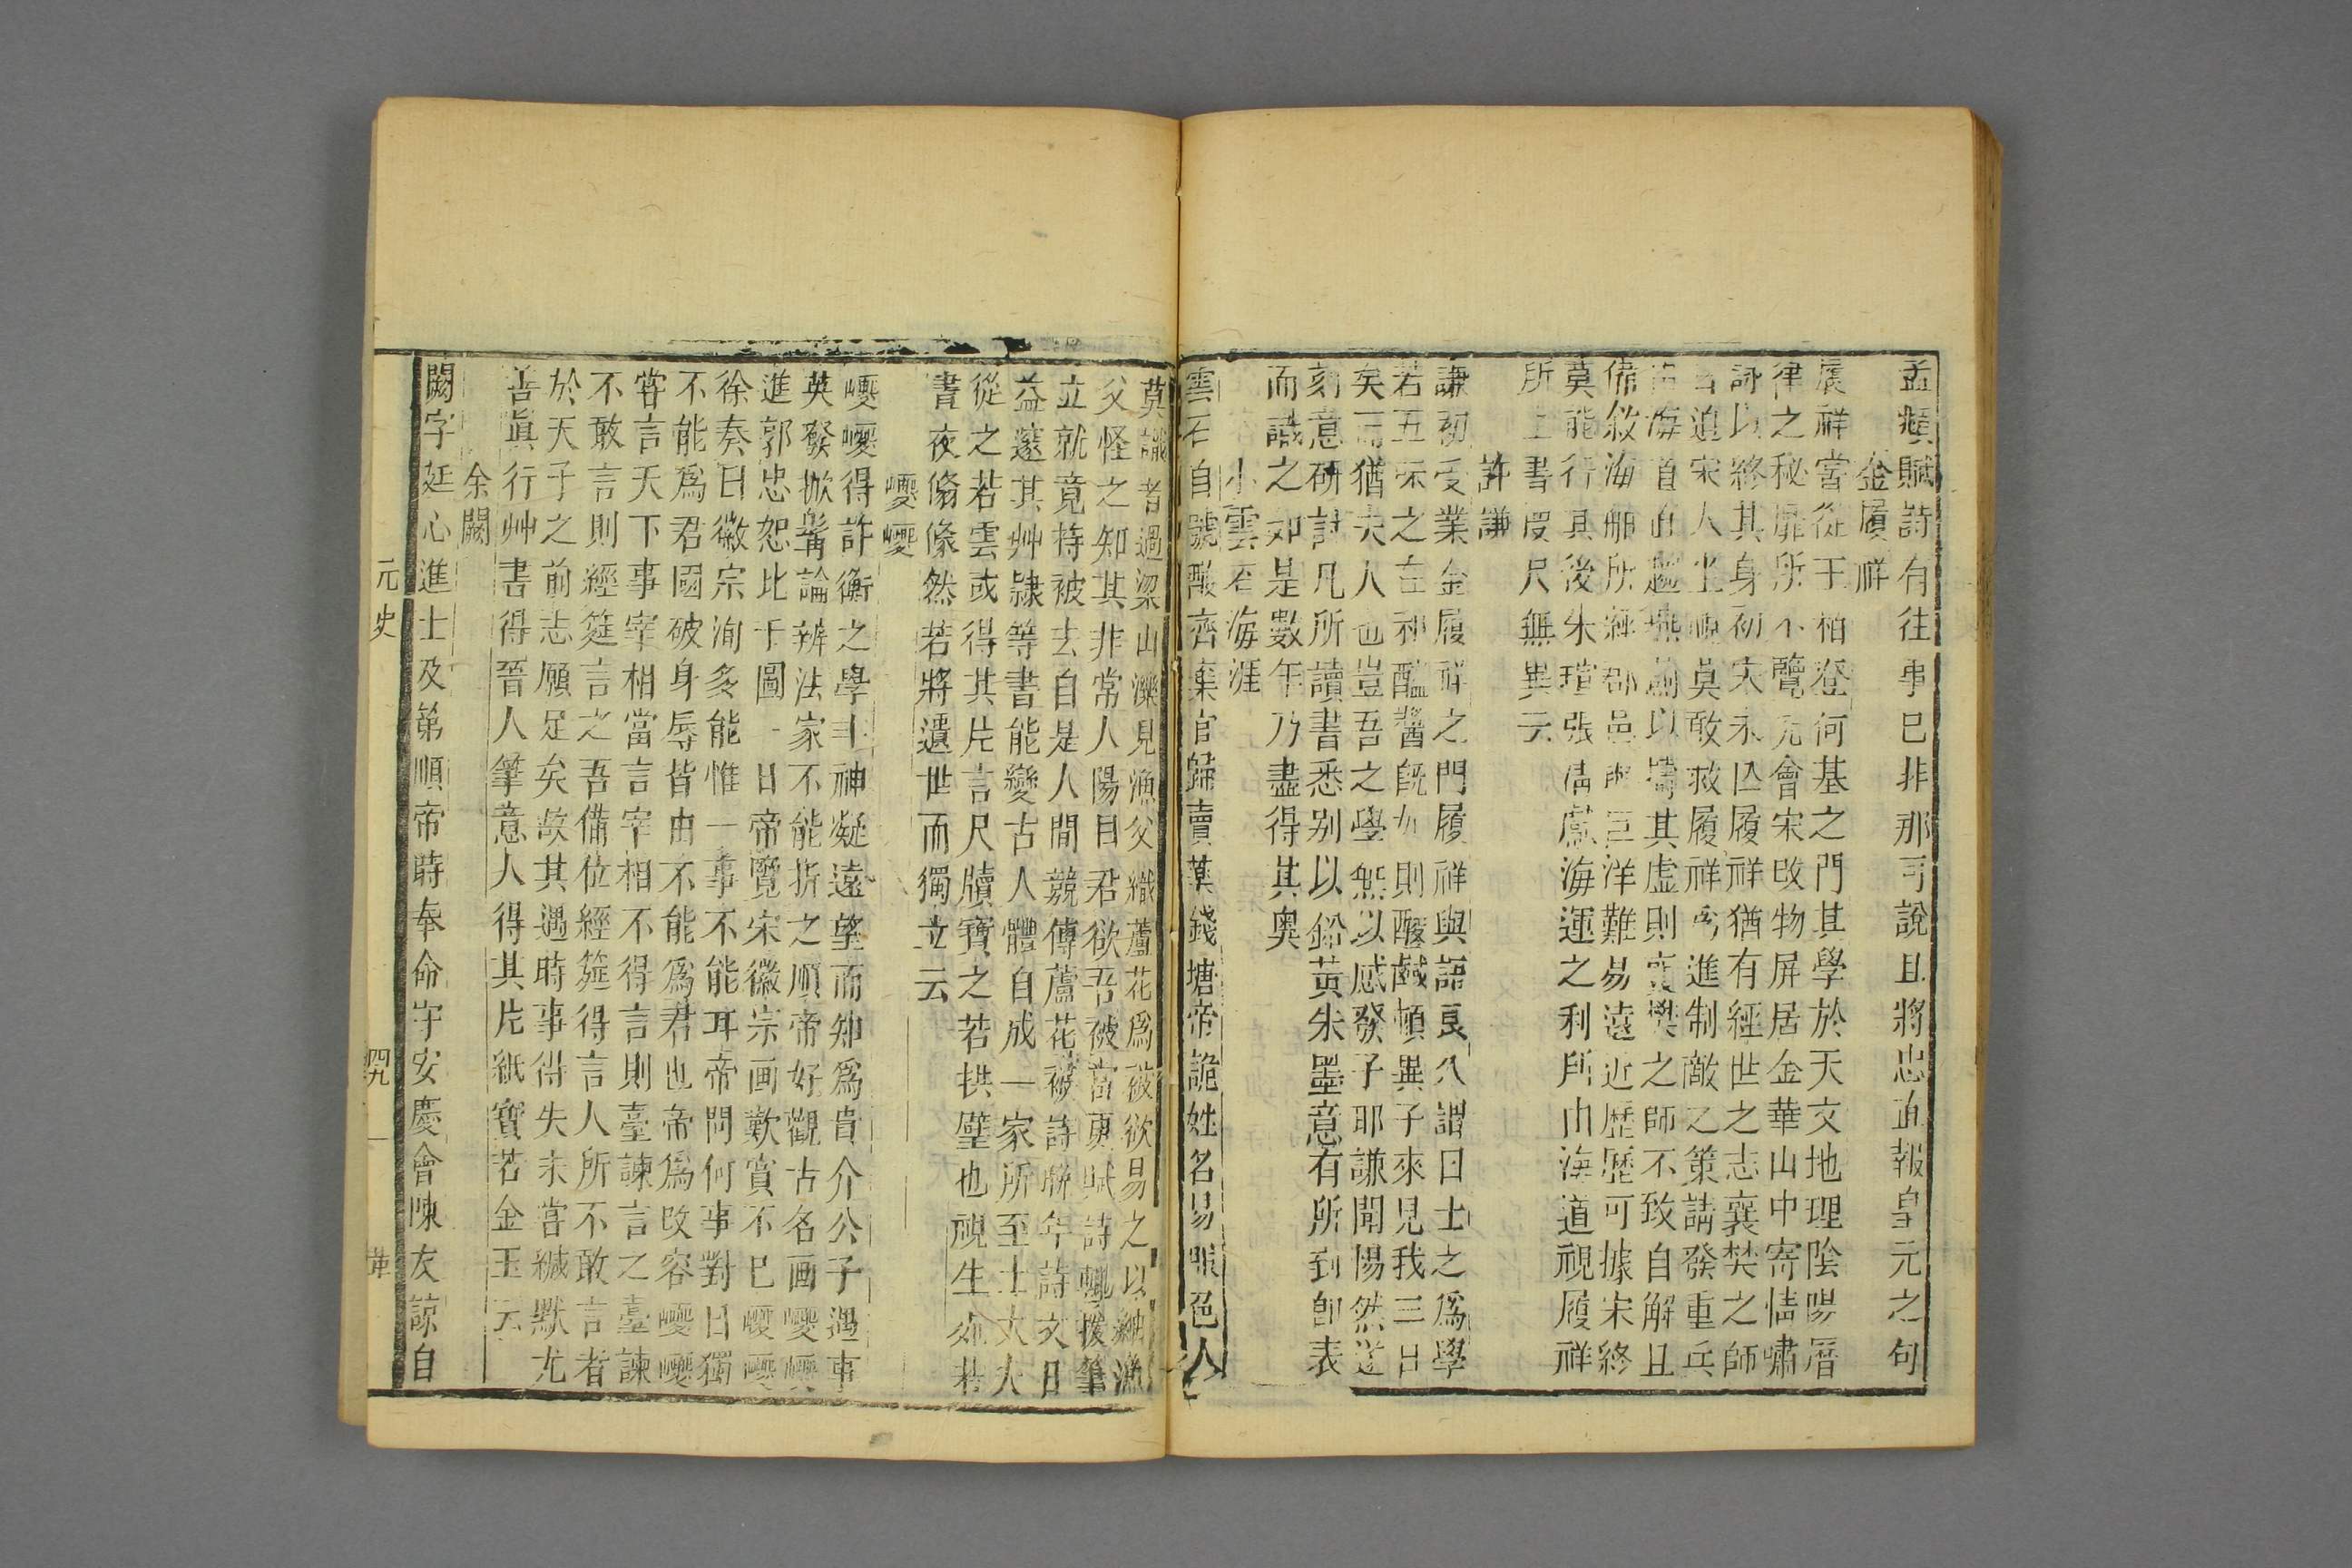 孟頫賦詩有往事已非那可說且將忠直報皇元之句
金履祥
履祥嘗從王柏登何基之門其學於天文地理陰陽曆
律之秘靡所不覽元會宋改物屏居金華山中寄情嘯
詠以終其身初宋未亾履祥猶有經世之志襄樊之師
日迫宋人坐視莫敢救履祥為進制敵之策請發重兵
由海道直趨燕薊以擣其虛則襄樊之師不致自解且
備敘海舶所經郡邑與巨洋難易遠近歷歷可據宋終
莫能行其後朱瑄張清獻海運之利所由海道視履祥
所上書咫尺無異云
許謙
謙初受業金履祥之門履祥與語良久謂曰士之為學
若五味之在和醯醬既加則酸醎頓異子來見我三日
矣而猶夫人也豈吾之學無以感發子耶謙聞惕然遂
刻意研討凡所讀書悉别以鉛黃朱墨意有所到卽表
而識之如是數年乃盡得其奥
小雲石海涯
雲石自號酸齊棄官歸賣藥錢塘帝詭姓名易服色人
莫識者過梁山濼見漁父織蘆花爲被欲易之以紬漁
父怪之知其非常人陽曰君欲吾被當更賦詩輙援筆
立就竟持被去自是人間競傳蘆花被詩聯年詩文日
益邃其艸隷等書能變古人體自成一家所至士大夫
從之若雲或得其片言尺牘寶之若拱璧也視生死若
書夜翛翛然若將遺世而獨立云
巙巙
巙巙得許衡之學丰神凝遠望而知爲貴介公子遇事
英發掀髯論辨法家不能折之順帝好觀古名画巙巙
進郭忠恕比干圖一日帝覽宋徽宗画歎賞不已巙巙
徐奏曰徽宗洵多能惟一事不能耳帝問何事對曰獨
不能爲君國破身辱皆由不能爲君也帝爲改容巙巙
嘗言天下事宰相當言宰相不得言則臺諫言之臺諫
不敢言則經筵言之吾備位經筵得言人所不敢言者
於天子之前志願足矣故其遇時事得失未嘗緘默尤
善眞行艸書得晉人筆意人得其片紙寶若金玉云
余闕
闕字延心進士及第順帝時奉命守安慶會陳友諒自
元史
四九